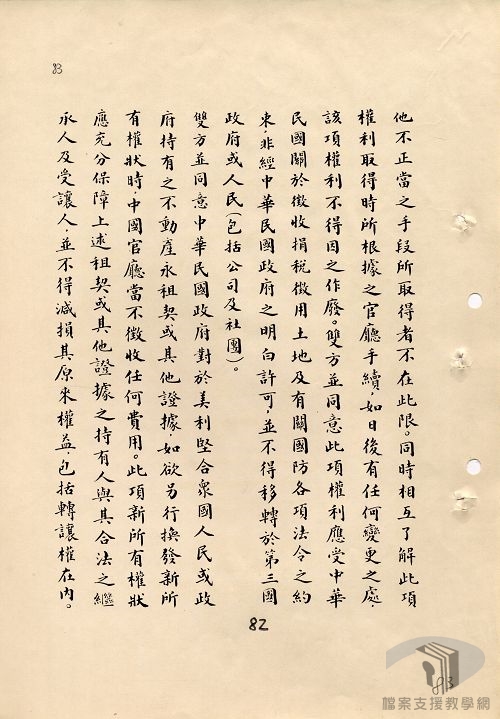 83
他不正當之手段所取得者不在此限。同時相互了解此項
權利取得時所根據之官廳手續，如日後有任何變更之處，
該項權利不得因之作廢。雙方並同意此項權利應受中華
民國關於徵收捐稅徵用土地及有關國防各項法令之約
束，非經中華民國政府之明白許可，並不得移轉於第三國
政府或人民（包括公司及社團）。
雙方並同意中華民國政府對於美利堅合衆國人民或政
府持有之不動產永租契或其他證據，如欲另行換發新所
有權狀時，中國官廳當不徵收任何費用。此項新所有權狀
應充分保障上述租契或其他證據之持有人與其合法之繼
承人及受讓人，並不得減損其原來權益，包括轉讓權在內。
82
83
檔案支援教學網